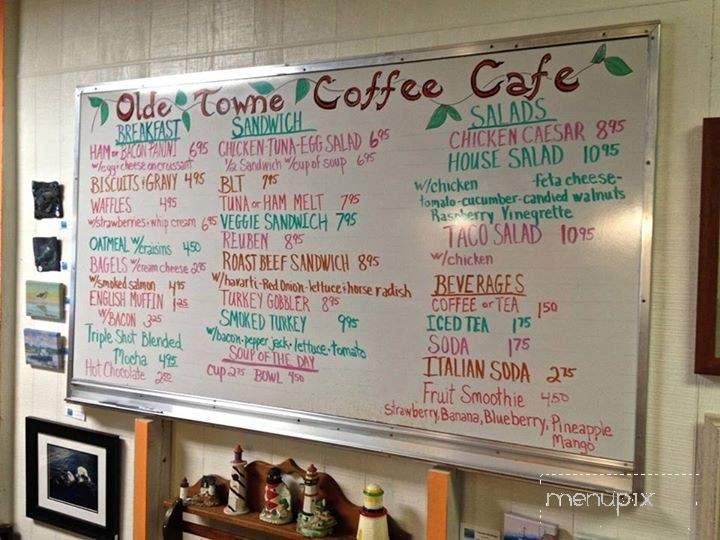 Olde Towne Coffee Cafe
BREAKFAST
HAM or BACON PANINI 6.95
w/egg + cheese on croissant
BISCUITS + GRAVY 4.95
WAFFLES 4.95
w/strawberries + whip cream 6.95
OATMEAL w/raisins 4.50
BAGELS w/cream cheese 2.95
w/smoked salmon 4.95
ENGLISH MUFFIN 1.25
w/BACON 3.25
Triple Shot Blended
Mocha 4.95
Hot Chocolate
SANDWICH
CHICKEN-TUNA-EGG SALAD 6.95
1/2 Sandwich w/cup of soup 6.95
BLT 7.95
TUNA or HAM MELT 7.95
VEGGIE SANDWICH 7.95
REUBEN 8.95
ROAST BEEF SANDWICH 8.95
w/havarti-Red Onion-lettuce + horse radish
TURKEY GOBBLER 8.95
SMOKED TURKEY 9.95
w/bacon-pepper jack-lettuce-tomato
SOUP OF THE DAY
CUP 2.75 BOWL 4.50
SALADS
CHICKEN CAESAR 8.95
HOUSE SALAD 10.95
w/chicken feta cheese-
tomato-cucumber-candied walnuts
Raspberry Vinegrette
TACO SALAD 10.95
w/chicken
BEVERAGES
COFFEE or TEA 1.50
ICED TEA 1.75
SODA 1.75
ITALIAN SODA 2.75
Fruit Smoothie 4.50
Strawberry, Banana, Blueberry, Pineapple
Mango
menupix